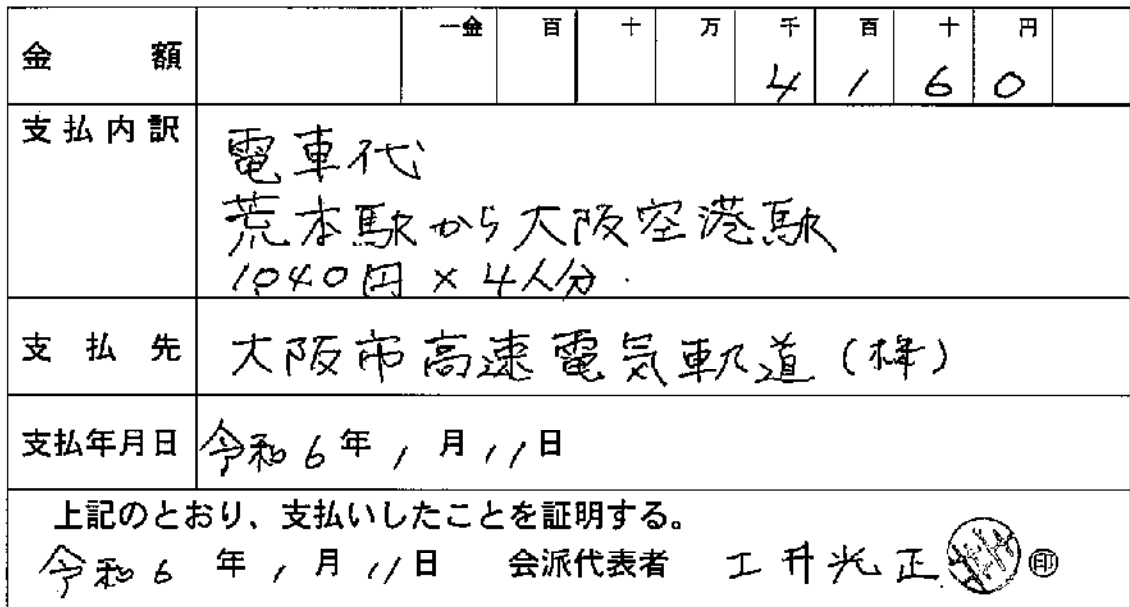 金額 一金 百 十 万 千 百 十 円
4 1 6 0
支払内訳 電車代
荒本駅から大阪空港駅
1,040円 × 4人分.
支払先 大阪市高速電気軌道(株)
支払年月日 令和6年1月11日
上記のとおり、支払いしたことを証明する。
令和6年1月11日 会派代表者 工井光正 ㊞